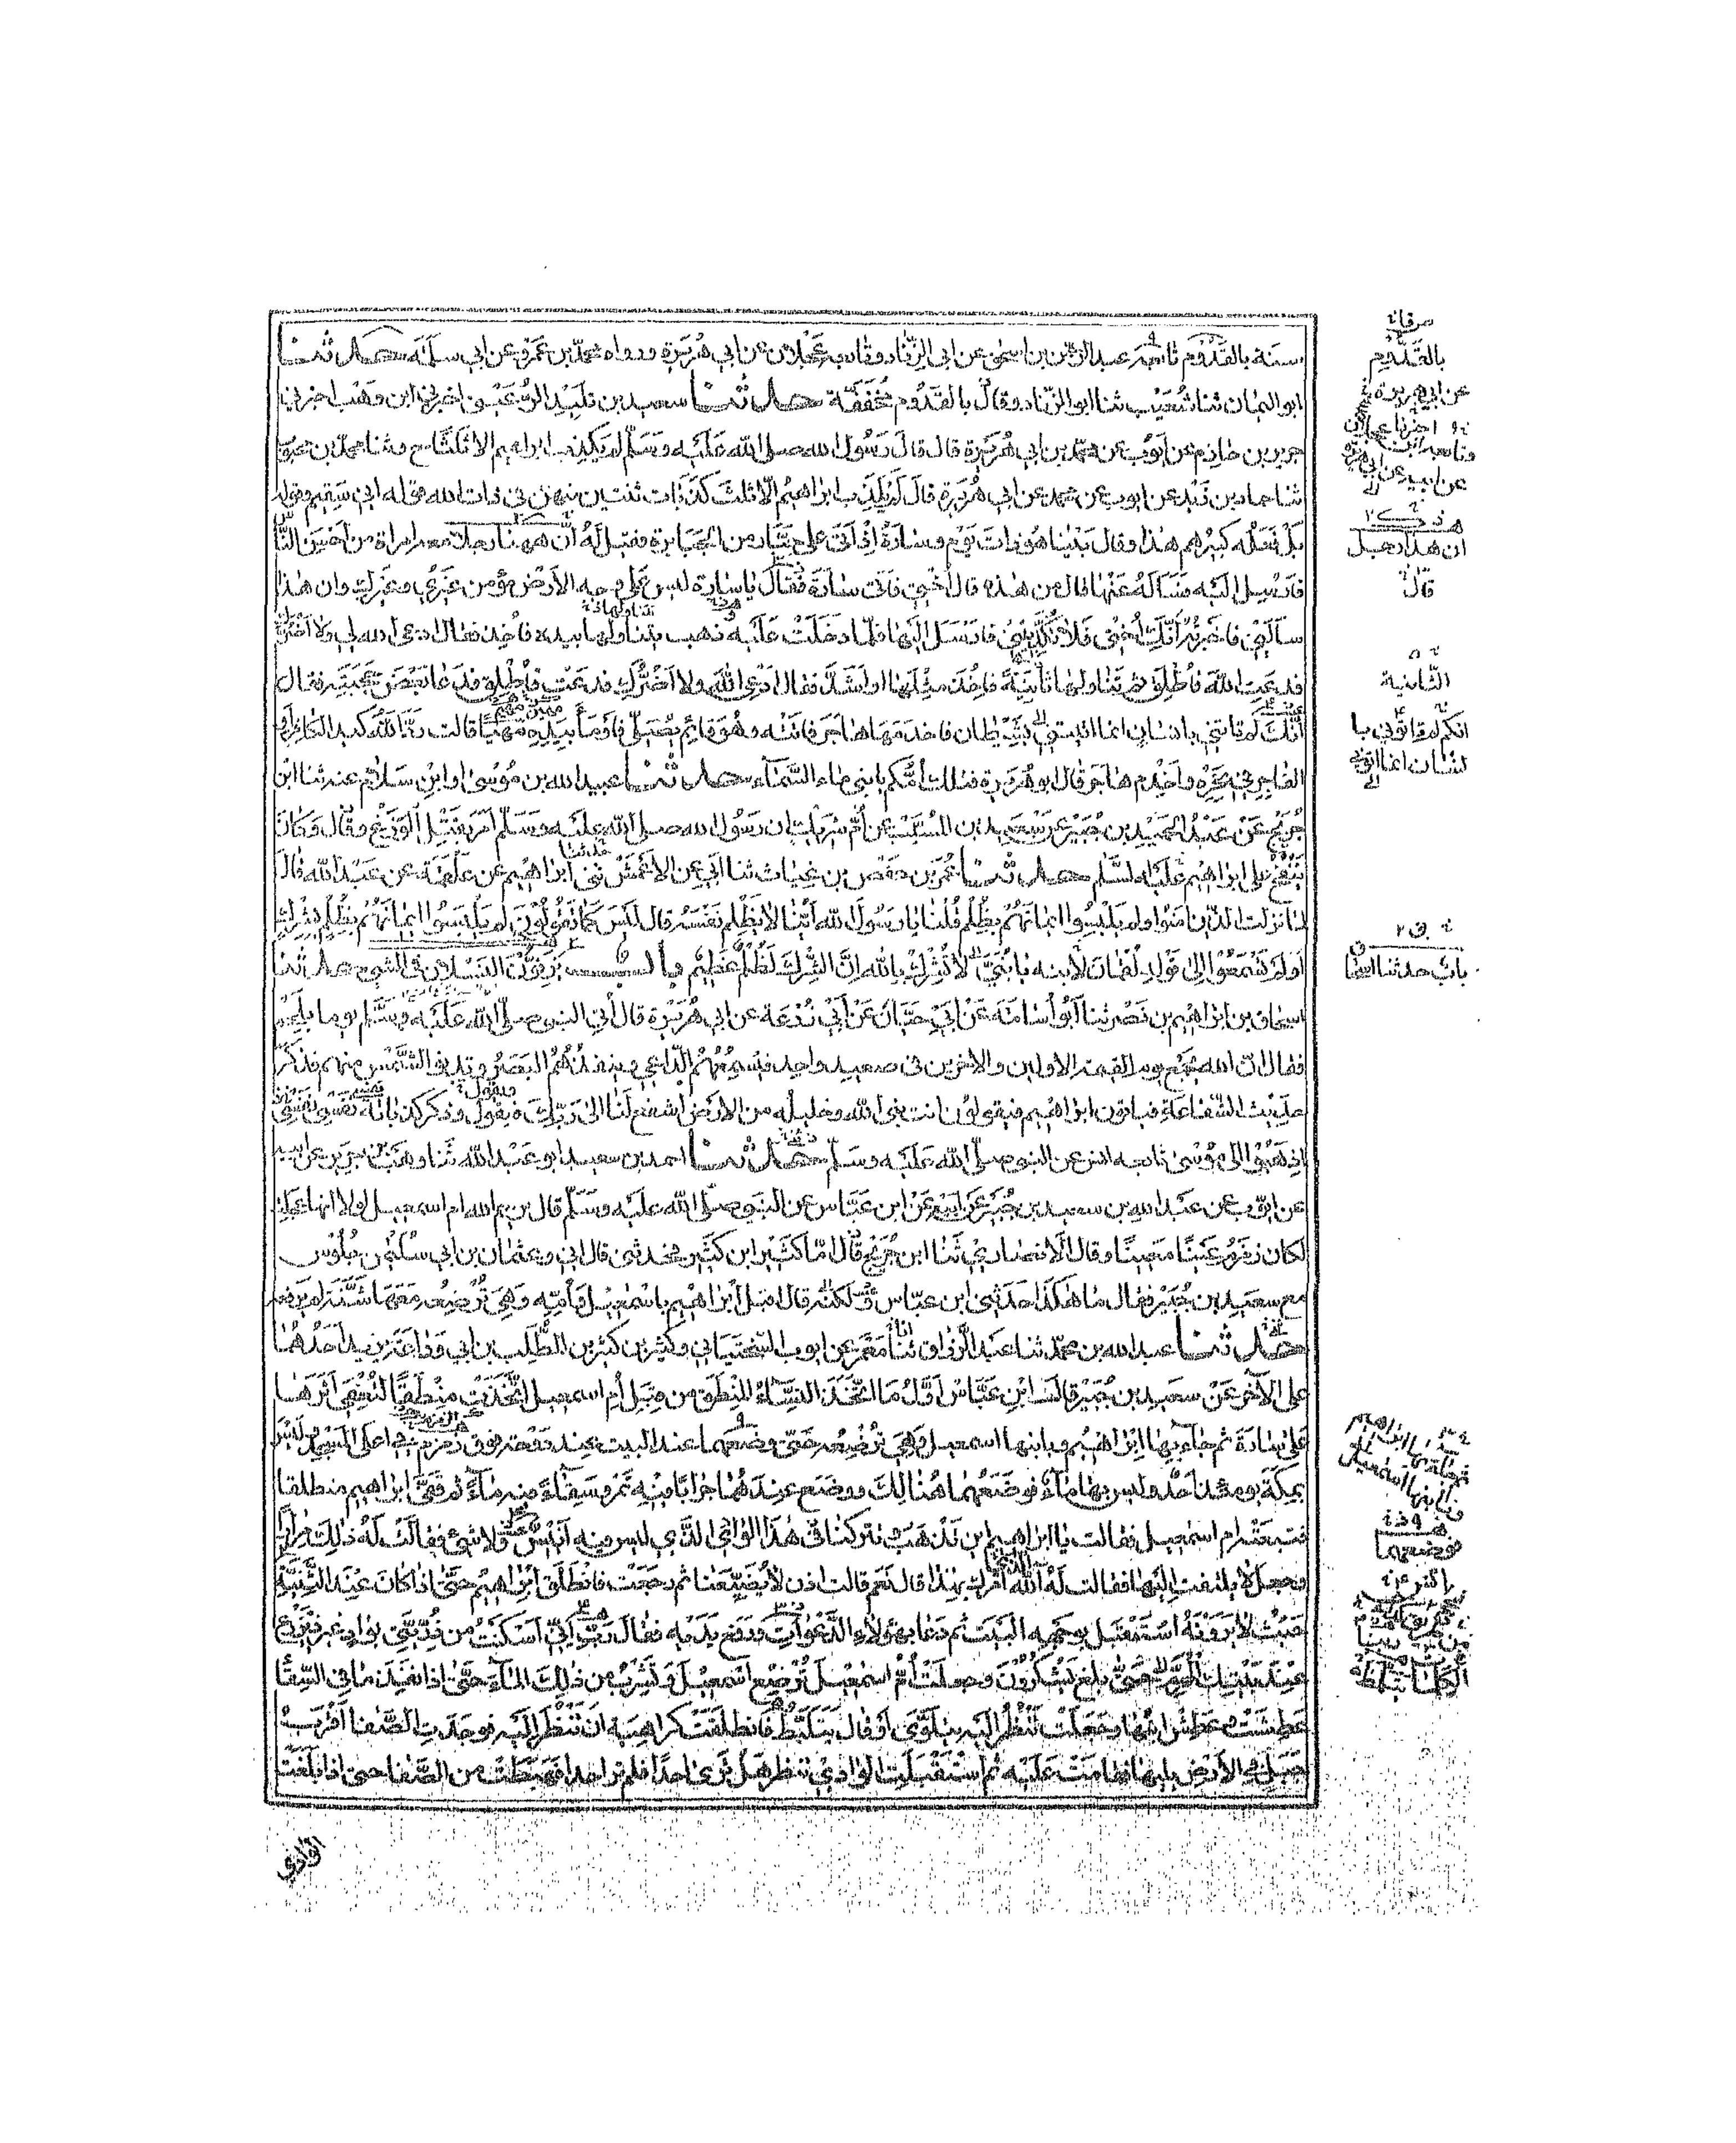 سنة بالقدوم تابعه عبد الرحمن بن اسحق عن ابي الزناد وتابعه عجلان عن ابي هريرة ورواه محمد بن عمرو عن ابي سلمة حدثنا
ابو اليمان ثنا شعيب ثنا ابو الزناد وقال بالقدوم مخففة حدثنا سعيد بن تليد الرعيني اخبرني ابن وهب اخبرني
جرير بن حازم عن ايوب عن محمد بن ابي هريرة قال قال رسول الله صلى الله عليه وسلم لم يكذب ابراهيم الا ثلثا ح وثنا محمد بن محبوب
ثنا حماد بن زيد عن ايوب عن محمد عن ابي هريرة قال لم يكذب ابراهيم الا ثلث كذبات ثنتين منهن في ذات الله قوله اني سقيم وقوله
بل فعله كبيرهم هذا وقال بينا هو ذات يوم وسارة اذ اتى على جبار من الجبابرة فقيل له ان ههنا رجلا معه امراة من احسن الناس
فارسل اليه فساله عنها فقال من هذه قال اختي فاتى سارة فقال يا سارة ليس على وجه الارض مؤمن غيري وغيرك وان هذا
سالني فاخبرته انك اختي فلا تكذبيني فارسل اليها فلما دخلت عليه ذهب يتناولها بيده فاخذ فقال ادعي الله لي ولا اضرك
فدعت الله فاطلق ثم تناولها ثانية فاخذ مثلها او اشد فقال ادعي الله ولا اضرك فدعت فاطلق فدعا بعض حجبته فقال
انك لم تاتني بانسان انما اتيتني بشيطان فاخدمها هاجر فاتته وهو قائم يصلي فاومأ بيده مهيا قالت رد الله كيد الكافر او
الفاجر في نحره واخدم هاجر قال ابو هريرة فتلك امكم يا بني ماء السماء حدثنا عبيد الله بن موسى او ابن سلام عنه ثنا ابن
جريج عن عبد الحميد بن جبير عن سعيد بن المسيب عن ام شريك ان رسول الله صلى الله عليه وسلم امر بقتل الوزغ وقال وكان
ينفخ على ابراهيم عليه السلم حدثنا عمر بن حفص بن غياث ثنا ابي عن الاعمش ثني ابراهيم عن علقمة عن عبد الله قال
لما نزلت الذين امنوا ولم يلبسوا ايمانهم بظلم قلنا يا رسول الله اينا لا يظلم نفسه قال ليس كما تقولون لم يلبسوا ايمانهم بظلم بشرك
اولم تسمعوا الى قول لقمان لابنه يا بني لا تشرك بالله ان الشرك لظلم عظيم باب يزفون النسلان في المشي حدثنا
اسحاق بن ابراهيم بن نصر ثنا ابو اسامة عن ابي حيان عن ابي زرعة عن ابي هريرة قال اتي النبي صلى الله عليه وسلم يوما بلحم
فقال ان الله يجمع يوم القيمة الاولين والاخرين في صعيد واحد فيسمعهم الداعي وينفذهم البصر وتدنو الشمس منهم فذكر
حديث الشفاعة فياتون ابراهيم فيقولون انت نبي الله وخليله من الارض اشفع لنا الى ربك فيقول وذكر كذباته نفسي نفسي
اذهبوا الى موسى تابعه انس عن النبي صلى الله عليه وسلم حدثنا احمد بن سعيد ابو عبد الله ثنا وهب بن جرير عن ابيه
عن ايوب عن عبد الله بن سعيد بن جبير عن ابيه عن ابن عباس عن النبي صلى الله عليه وسلم قال يرحم الله ام اسمعيل لولا انها عجلت
لكان زمزم عينا معينا وقال الانصاري ثنا ابن جريج قال اما كثير ابن كثير فحدثني قال اني وعثمان بن ابي سليمن جلوس
مع سعيد بن جبير فقال ما هكذا حدثني ابن عباس ولكنه قال اقبل ابراهيم باسمعيل وامه وهي ترضعه معها شنة لم يرفعه
حدثنا عبد الله بن محمد ثنا عبد الرزاق ثنا معمر عن ايوب السختياني وكثير بن كثير بن المطلب بن ابي وداعة يزيد احدهما
على الاخر عن سعيد بن جبير قال ابن عباس اول ما اتخذ النساء المنطق من قبل ام اسمعيل اتخذت منطقا لتعفي اثرها
على سارة ثم جاء بها ابراهيم وبابنها اسمعيل وهي ترضعه حتى وضعهما عند البيت عند دوحة فوق زمزم في اعلى المسجد وليس
بمكة يومئذ احد وليس بها ماء فوضعهما هنالك ووضع عندهما جرابا فيه تمر وسقاء فيه ماء ثم قفى ابراهيم منطلقا
فتبعته ام اسمعيل فقالت يا ابراهيم اين تذهب وتتركنا في هذا الوادي الذي ليس فيه انيس ولا شئ فقالت له ذلك مرارا
وجعل لا يلتفت اليها فقالت له آلله امرك بهذا قال نعم قالت اذن لا يضيعنا ثم رجعت فانطلق ابراهيم حتى اذا كان عند الثنية
حيث لا يرونه استقبل بوجهه البيت ثم دعا بهؤلاء الدعوات ورفع يديه فقال رب اني اسكنت من ذريتي بواد غير ذي زرع
عند بيتك المحرم حتى بلغ يشكرون وجعلت ام اسمعيل ترضع اسمعيل وتشرب من ذلك الماء حتى اذا نفد ما في السقا
عطشت وعطش ابنها وجعلت تنظر اليه يتلوى او قال يتلبط فانطلقت كراهية ان تنظر اليه فوجدت الصفا اقرب
جبل في الارض يليها فقامت عليه ثم استقبلت الوادي تنظر هل ترى احدا فلم تر احدا فهبطت من الصفا حتى اذا بلغت
الوادي
بالقدوم
عن ابي هريرة
ان هذا رجل
قال
الثانية
انكم لم تاتوني با
نسان انما اتيتموني
باب حدثنا اسحاق
فوضعهما